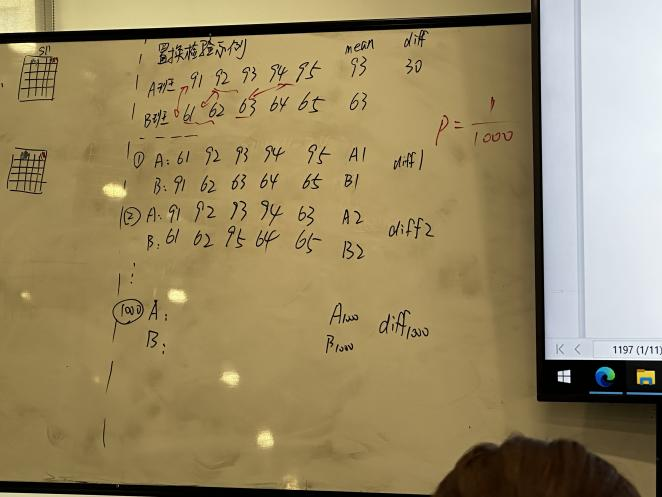 S11
置换检验示例 mean diff
A班 91 92 93 94 95 93 30
B班 61 62 63 64 65 63
P = 1/1000
① A: 61 92 93 94 95 A1 diff1
B: 91 62 63 64 65 B1
② A: 91 92 93 94 63 A2 diff2
B: 61 62 95 64 65 B2
⋮
1000 A: A1000 diff1000
B: B1000
1197 (1/11)